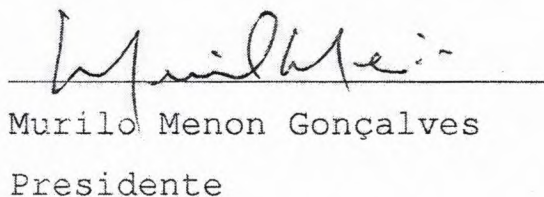 Murilo Menon Gonçalves
Presidente